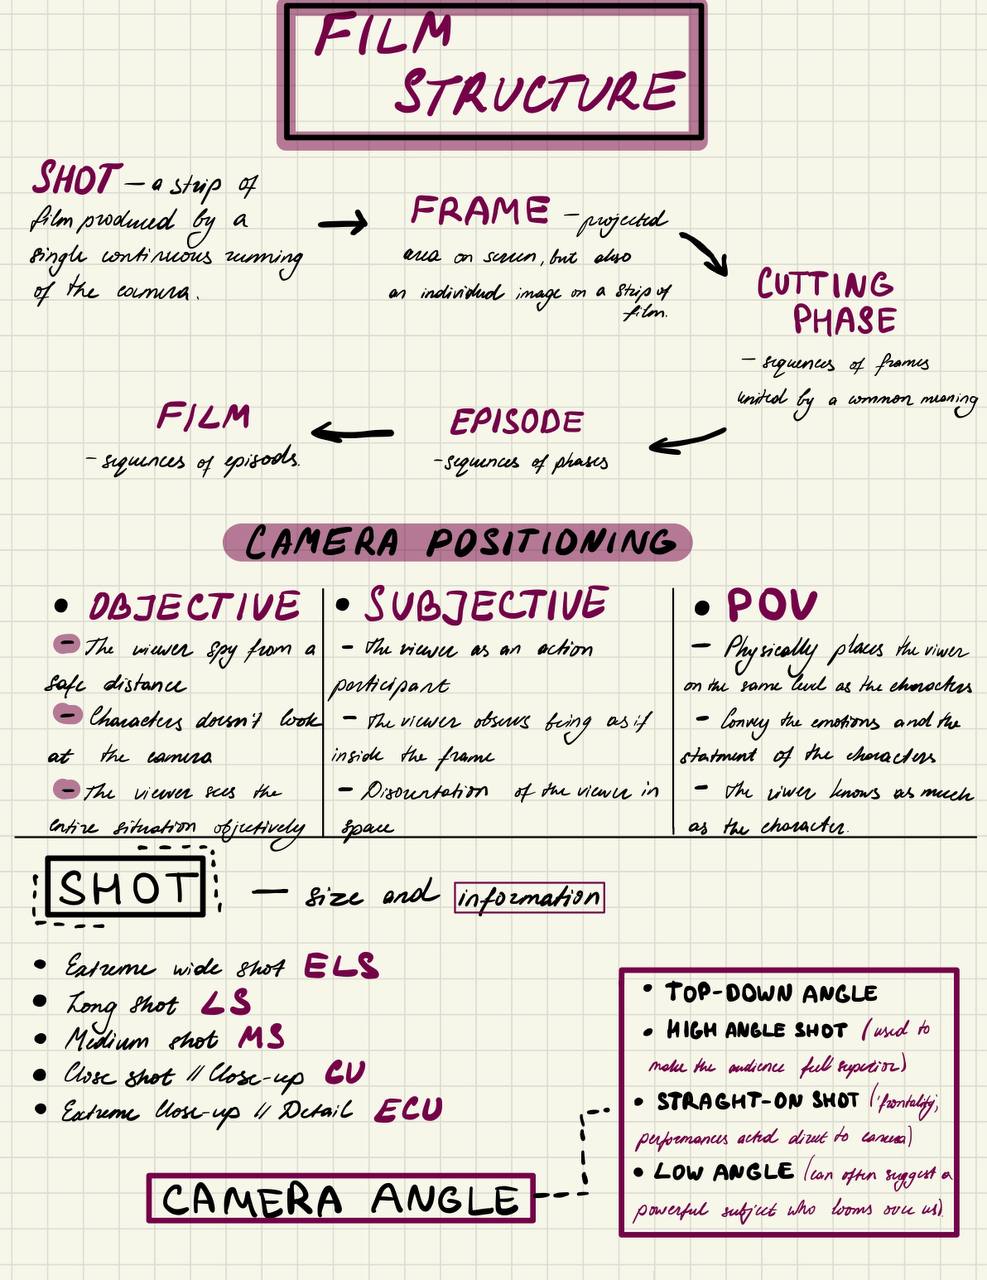 FILM
STRUCTURE
SHOT — a strip of
film produced by a
single continuous running
of the camera.
FRAME — projected
area on screen, but also
an individual image on a strip of
film.
CUTTING
PHASE
— sequences of frames
united by a common meaning
EPISODE
- sequences of phases
FILM
- sequences of episods.
CAMERA POSITIONING
• OBJECTIVE
- The viewer spy from a
safe distance
- Characters doesn't look
at the camera
- The viewer sees the
entire situation objectively
• SUBJECTIVE
- The viewer as an action
participant
- The viewer observs being as if
inside the frame
- Disorientation of the viewer in
space
• POV
- Physically places the viwer
on the same level as the characters
- Convey the emotions and the
statment of the characters
- The viwer knows as much
as the character.
SHOT — size and information
• Extreme wide shot ELS
• Long shot LS
• Medium shot MS
• Close shot // Close-up CU
• Extreme Close-up // Detail ECU
CAMERA ANGLE
• TOP-DOWN ANGLE
• HIGH ANGLE SHOT (used to
make the audience full superior)
• STRAGHT-ON SHOT ('frontality,
performances acted direct to camera)
• LOW ANGLE (can often suggest a
powerful subject who looms over us)